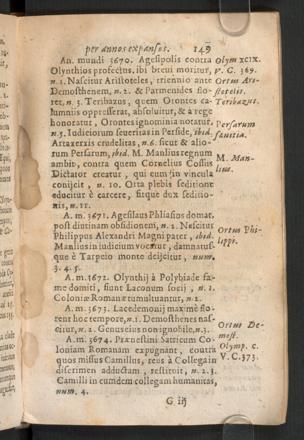 per annos expansos. 149
An. mundi 3670. Agesipolis contra
Olynthios profectus, ibi brevi moritur,
n. 1. Nascitur Aristoteles, triennio ante
Demosthenem, n. 2. & Parmenides floret,
n. 3. Teribazus, quem Orontes calumniis
oppresserat, absolvitur, & à rege
honoratur, Orontes ignominia notatur,
n. 5. Iudiciorum severitas in Perside, ibid.
Artaxerxis crudelitas, n. 6. sicut & aliorum
Persarum, ibid. M. Manlius regnum
ambit, contra quem Cornelius Cossus
Dictator creatur, qui eum in vincula
conijcit, n. 10. Orta plebis seditione
educitur è carcere, fitque dux seditionis,
n. 11.
A. m. 3671. Agesilaus Phliasios domat,
post diutinam obsidionem, n. 2. Nascitur
Philippus Alexandri Magni pater, ibid.
Manlius in iudicium vocatur, damnatusque
è Tarpeio monte deijcitur, num.
3. 4. 5.
A. m. 3672. Olynthij à Polybiade fame
domiti, fiunt Laconum socij, n. 1.
Coloniæ Romanæ tumultuantur, n. 2.
A. m. 3673. Lacedemonij maximè florent
hoc tempore, n. 1. Demosthenes nascitur,
n. 2. Genuseius non ignobile, n. 3.
A. m. 3674. Prænestini Satricum Coloniam
Romanam expugnant, contra
quos missus Camillus, reus à Collega in
discrimen adductam, restituit, n. 2. 3.
Camilli in eumdem collegam humanitas,
num. 4.
G iij
Olym XCIX.
V. C. 369.
Ortus Aristotelis.
Teribazus.
Persarum
sævitia.
M. Manlius.
Ortus Philippi.
Ortus Demost.
Olymp. c.
V. C. 373.